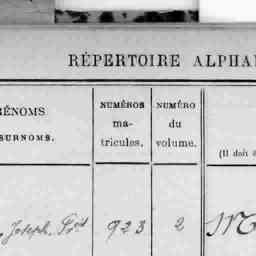 RÉPERTOIRE ALPHA
RÉNOMS
SURNOMS.
NUMÉROS
ma-
tricules.
NUMÉRO
du
volume.
(Il doit
Joseph. 923 2